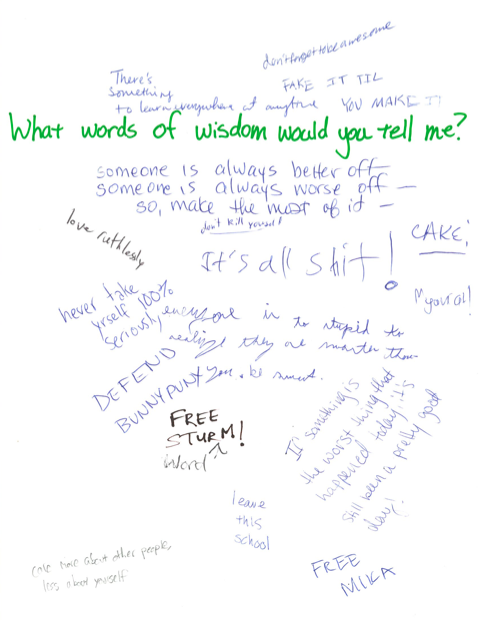 don't forget to be awesome
There's
something
to learn everywhere at anytime
FAKE IT TIL
YOU MAKE IT
What words of wisdom would you tell me?
someone is always better off —
someone is always worse off —
so, make the most of it —
don't kill yourself!
love ruthlessly
It's all shit!
CAKE!
never take
yrself 100%
seriously
everyone is to stupid to
realize they are smarter than
you. be smart.
DEFEND
BUNNYPUNX
FREE
STURM!
word
If something is
the worst thing that
happened today it's
still been a pretty good
day!
leave
this
school
care more about other people,
less about yourself
FREE
MIKA